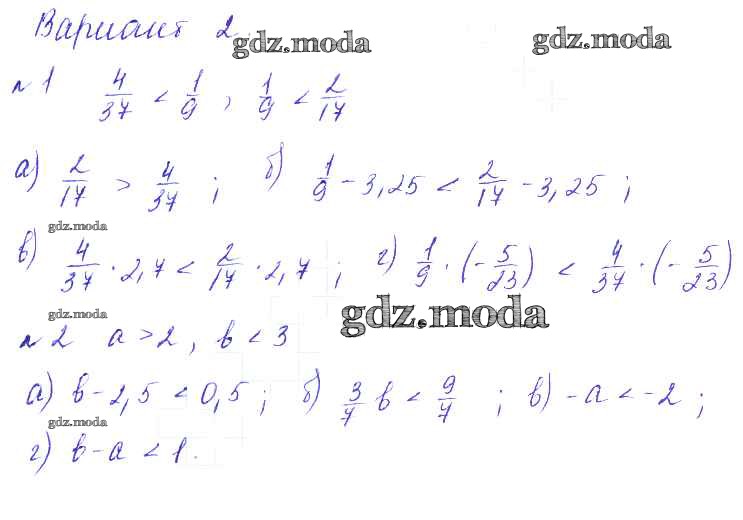 Вариант 2.
gdz.moda
gdz.moda
№ 1 4/37 < 1/9 , 1/9 < 2/17
а) 2/17 > 4/37 ; б) 1/9 - 3,25 < 2/17 - 3,25 ;
gdz.moda
в) 4/37 · 2,7 < 2/17 · 2,7 ; г) 1/9 · (- 5/23) < 4/37 · (- 5/23)
gdz.moda
gdz.moda
№ 2 a > 2 , b < 3
а) b - 2,5 < 0,5 ; б) 3/7 b < 9/7 ; в) - a < - 2 ;
gdz.moda
г) b - a < 1 .